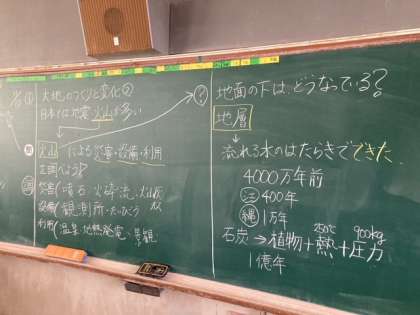 大地のつくりと変化②
日本には地震、火山が多い
火山による災害・設備・利用
災害 噴石・火砕流・火山灰
設備 観測所・たいひごう
利用 温泉 地熱発電・景観
地面の下は、どうなっている?
地層
流れる水のはたらきでできた
4000万年前
江 400年
縄 1万年
石炭→植物+熱+圧力
250℃ 900kg
1億年